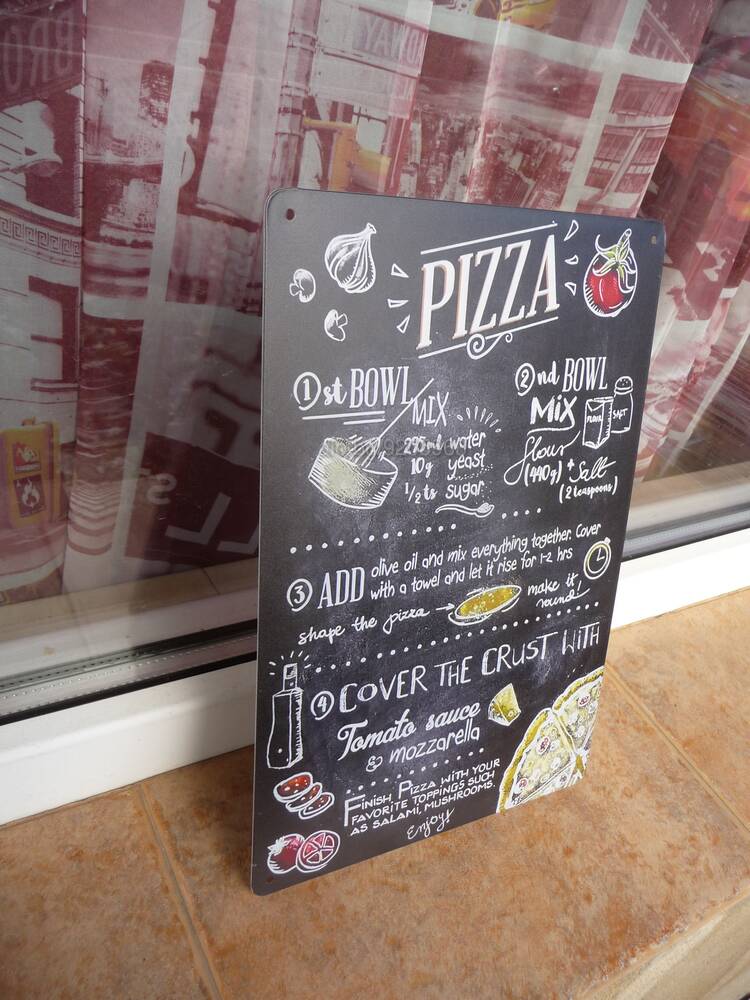 PIZZA
1st BOWL
MIX
water
10g yeast
1/2 ts sugar
2nd BOWL
MIX
FLOUR
SALT
flour
(440g) + Salt
(2 teaspoons)
3 ADD olive oil and mix everything together. Cover
with a towel and let it rise for 1-2 hrs
shape the pizza → make it
round!
4 COVER THE CRUST WITH
Tomato sauce
& mozzarella
FINISH PIZZA WITH YOUR
FAVORITE TOPPINGS SUCH
AS SALAMI, MUSHROOMS.
Enjoy!